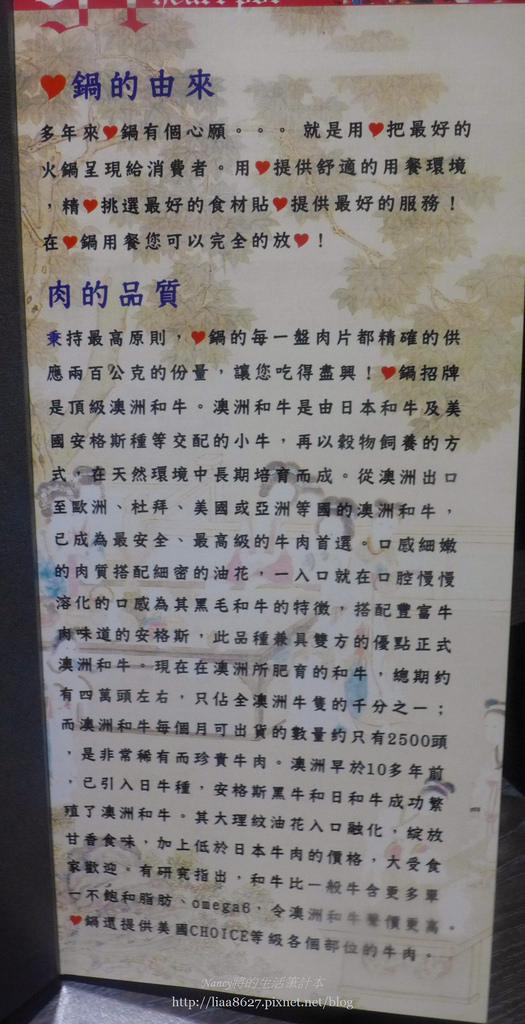 ♥鍋的由來
多年來♥鍋有個心願。。。 就是用♥把最好的
火鍋呈現給消費者。用♥提供舒適的用餐環境
，精♥挑選最好的食材貼♥提供最好的服務！
在♥鍋用餐您可以完全的放♥！
肉的品質
秉持最高原則，♥鍋的每一盤肉片都精確的供
應兩百公克的份量，讓您吃得盡興！♥鍋招牌
是頂級澳洲和牛。澳洲和牛是由日本和牛及美
國安格斯種等交配的小牛，再以穀物飼養的方
式，在天然環境中長期培育而成。從澳洲出口
至歐洲、杜拜、美國或亞洲等國的澳洲和牛，
已成為最安全、最高級的牛肉首選。口感細嫩
的肉質搭配細密的油花，一入口就在口腔慢慢
溶化的口感為其黑毛和牛的特徵，搭配豐富牛
肉味道的安格斯，此品種兼具雙方的優點正式
澳洲和牛。現在在澳洲所肥育的和牛，總期約
有四萬頭左右，只佔全澳洲牛隻的千分之一；
而澳洲和牛每個月可出貨的數量約只有2500頭
，是非常稀有而珍貴牛肉。澳洲早於10多年前
，已引入日牛種，安格斯黑牛和日和牛成功繁
殖了澳洲和牛。其大理紋油花入口融化，綻放
甘香食味，加上低於日本牛肉的價格，大受食
家歡迎。有研究指出，和牛比一般牛含更多單
一不飽和脂肪、omega6，令澳洲和牛聲價更高。
♥鍋還提供美國CHOICE等級各個部位的牛肉。
Nancy將的生活筆計本
http://liaa8627.pixnet.net/blog